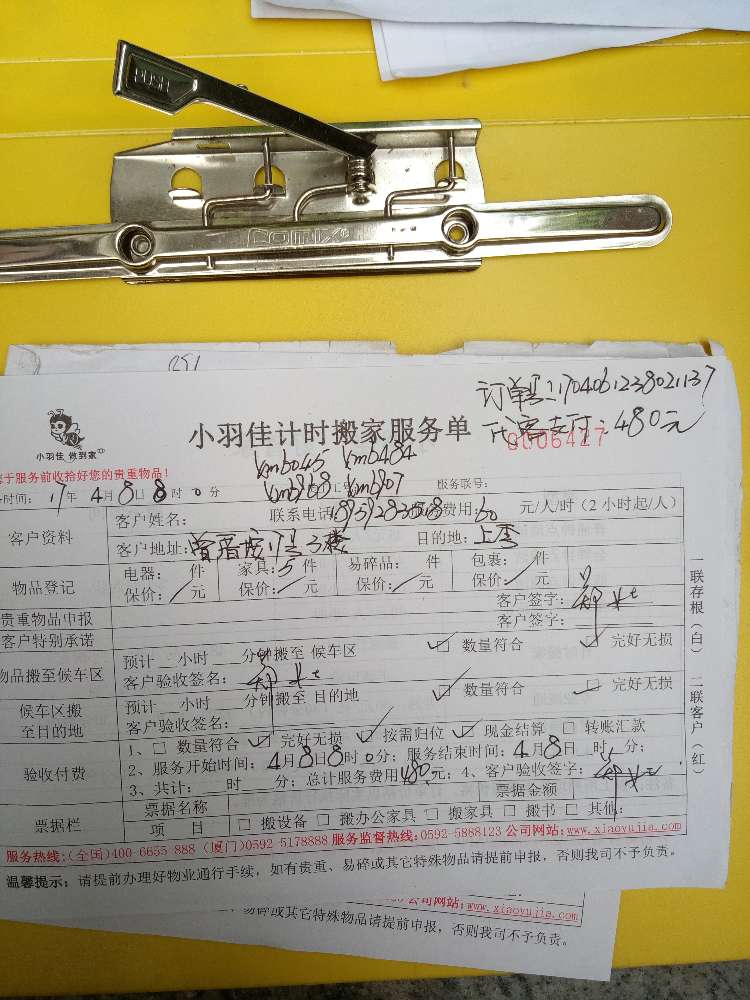 PUSH
comix®
订单号:1704061238021137
小羽佳 做到家
小羽佳计时搬家服务单
支付:480元
0006427
于服务前收拾好您的贵重物品!
kmb045 kmb484
时间:17年4月8日8时0分
服务联号:
客户资料
客户姓名: 联系电话 费用:60 元/人/时(2小时起/人)
客户地址: 1号3楼 目的地:上秀
物品登记
电器: 件 家具:5件 易碎品: 件 包裹: 件
保价: 元 保价: 元 保价: 元 保价: 元
贵重物品申报
客户签字:
客户特别承诺
客户签字:
物品搬至候车区
预计 小时 分钟搬至 候车区 ☑ 数量符合 ☑ 完好无损
客户验收签名:
候车区搬至目的地
预计 小时 分钟搬至 目的地 ☑ 数量符合 ☑ 完好无损
客户验收签名:
验收付费
1、□ 数量符合 ☑ 完好无损 ☑ 按需归位 ☑ 现金结算 □ 转账汇款
2、服务开始时间:4月8日8时0分;服务结束时间:4月8日 时 分;
3、共计: 时 分;总计服务费用480元;4、客户验收签字:
票据栏
票据名称 票据金额
项 目 □ 搬设备 □ 搬办公家具 □ 搬家具 □ 搬书 □ 其他:
一联存根(白) 二联客户(红)
服务热线:(全国)400-6655 888 (厦门)0592 5178888 服务监督热线:0592-5888123 公司网站:www.xiaoyujia.com
温馨提示:请提前办理好物业通行手续,如有贵重、易碎或其它特殊物品请提前申报,否则我司不予负责。
公司网站:www.xiaoyujia.com
易碎或其它特殊物品请提前申报,否则我司不予负责。